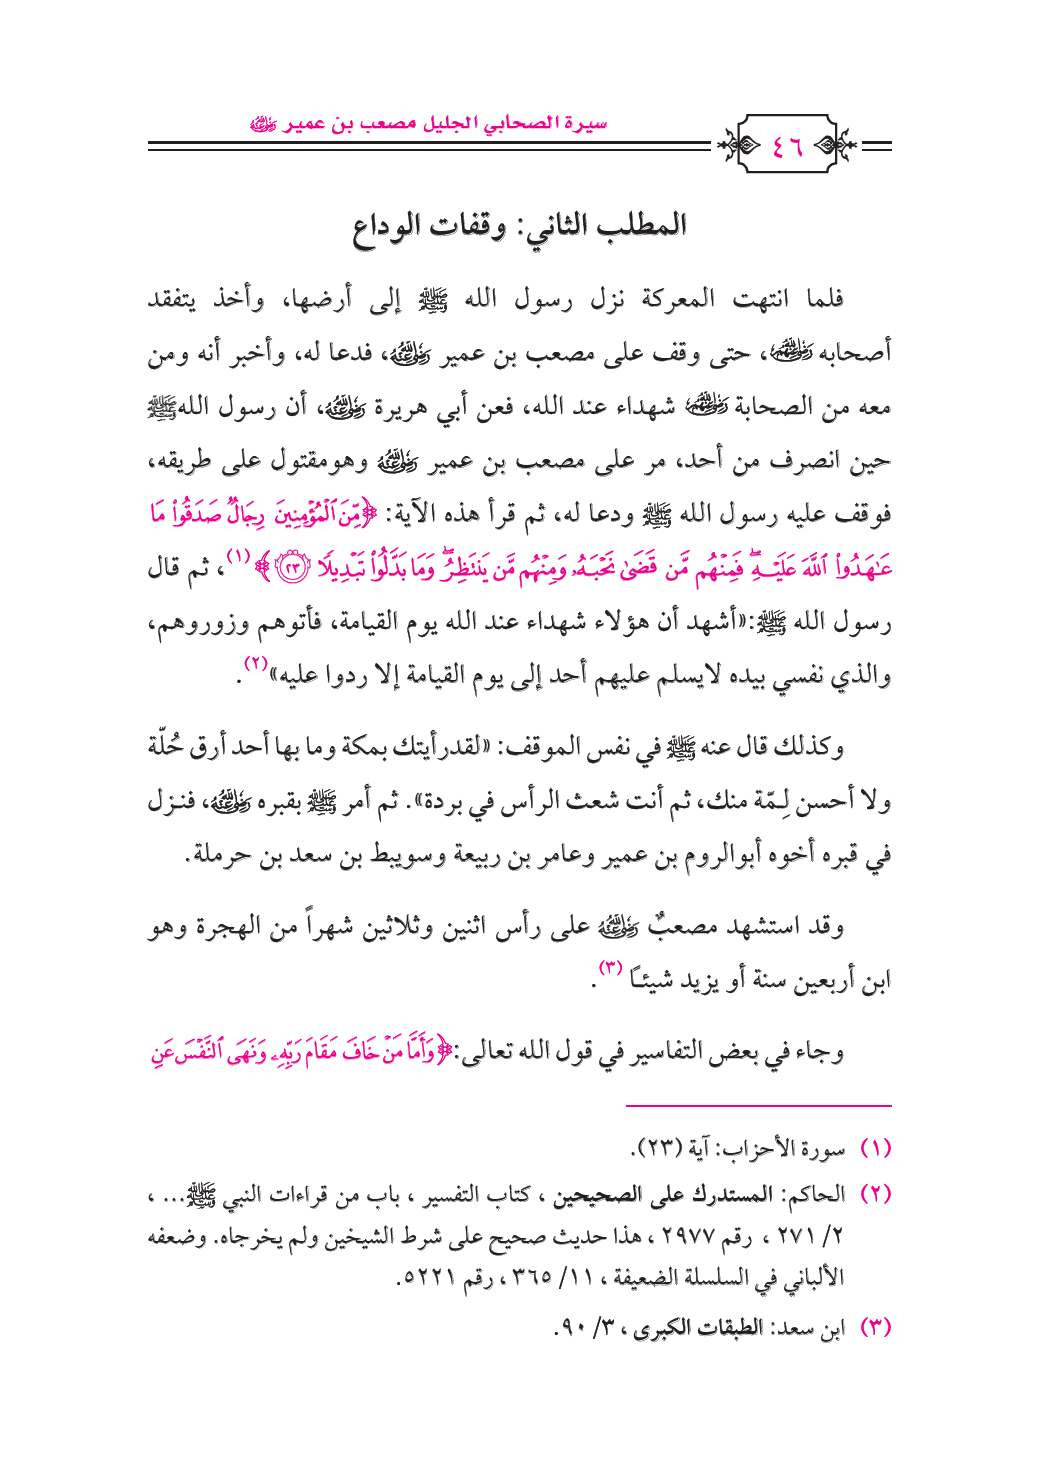 سيرة الصحابي الجليل مصعب بن عمير رضي الله عنه
٤٦
المطلب الثاني: وقفات الوداع
فلما انتهت المعركة نزل رسول الله ﷺ إلى أرضها، وأخذ يتفقد
أصحابه رضي الله عنهم، حتى وقف على مصعب بن عمير رضي الله عنه، فدعا له، وأخبر أنه ومن
معه من الصحابة رضي الله عنهم شهداء عند الله، فعن أبي هريرة رضي الله عنه، أن رسول الله ﷺ
حين انصرف من أحد، مر على مصعب بن عمير رضي الله عنه وهومقتول على طريقه،
فوقف عليه رسول الله ﷺ ودعا له، ثم قرأ هذه الآية: ﴿مِّنَ ٱلْمُؤْمِنِينَ رِجَالٌ صَدَقُوا۟ مَا
عَـٰهَدُوا۟ ٱللَّهَ عَلَيْهِ ۖ فَمِنْهُم مَّن قَضَىٰ نَحْبَهُۥ وَمِنْهُم مَّن يَنتَظِرُ ۖ وَمَا بَدَّلُوا۟ تَبْدِيلًا ٢٣﴾(١)، ثم قال
رسول الله ﷺ:«أشهد أن هؤلاء شهداء عند الله يوم القيامة، فأتوهم وزوروهم،
والذي نفسي بيده لايسلم عليهم أحد إلى يوم القيامة إلا ردوا عليه»(٢).
وكذلك قال عنه ﷺ في نفس الموقف: «لقدرأيتك بمكة وما بها أحد أرق حُلّة
ولا أحسن لِـمّة منك، ثم أنت شعث الرأس في بردة». ثم أمر ﷺ بقبره رضي الله عنه، فنـزل
في قبره أخوه أبوالروم بن عمير وعامر بن ربيعة وسويبط بن سعد بن حرملة.
وقد استشهد مصعبٌ رضي الله عنه على رأس اثنين وثلاثين شهراً من الهجرة وهو
ابن أربعين سنة أو يزيد شيئـًا (٣).
وجاء في بعض التفاسير في قول الله تعالى:﴿وَأَمَّا مَنْ خَافَ مَقَامَ رَبِّهِۦ وَنَهَى ٱلنَّفْسَ عَنِ
(١) سورة الأحزاب: آية (٢٣).
(٢) الحاكم: المستدرك على الصحيحين ، كتاب التفسير ، باب من قراءات النبي ﷺ... ،
٢/ ٢٧١ ، رقم ٢٩٧٧ ، هذا حديث صحيح على شرط الشيخين ولم يخرجاه. وضعفه
الألباني في السلسلة الضعيفة ، ١١/ ٣٦٥ ، رقم ٥٢٢١.
(٣) ابن سعد: الطبقات الكبرى ، ٣/ ٩٠.